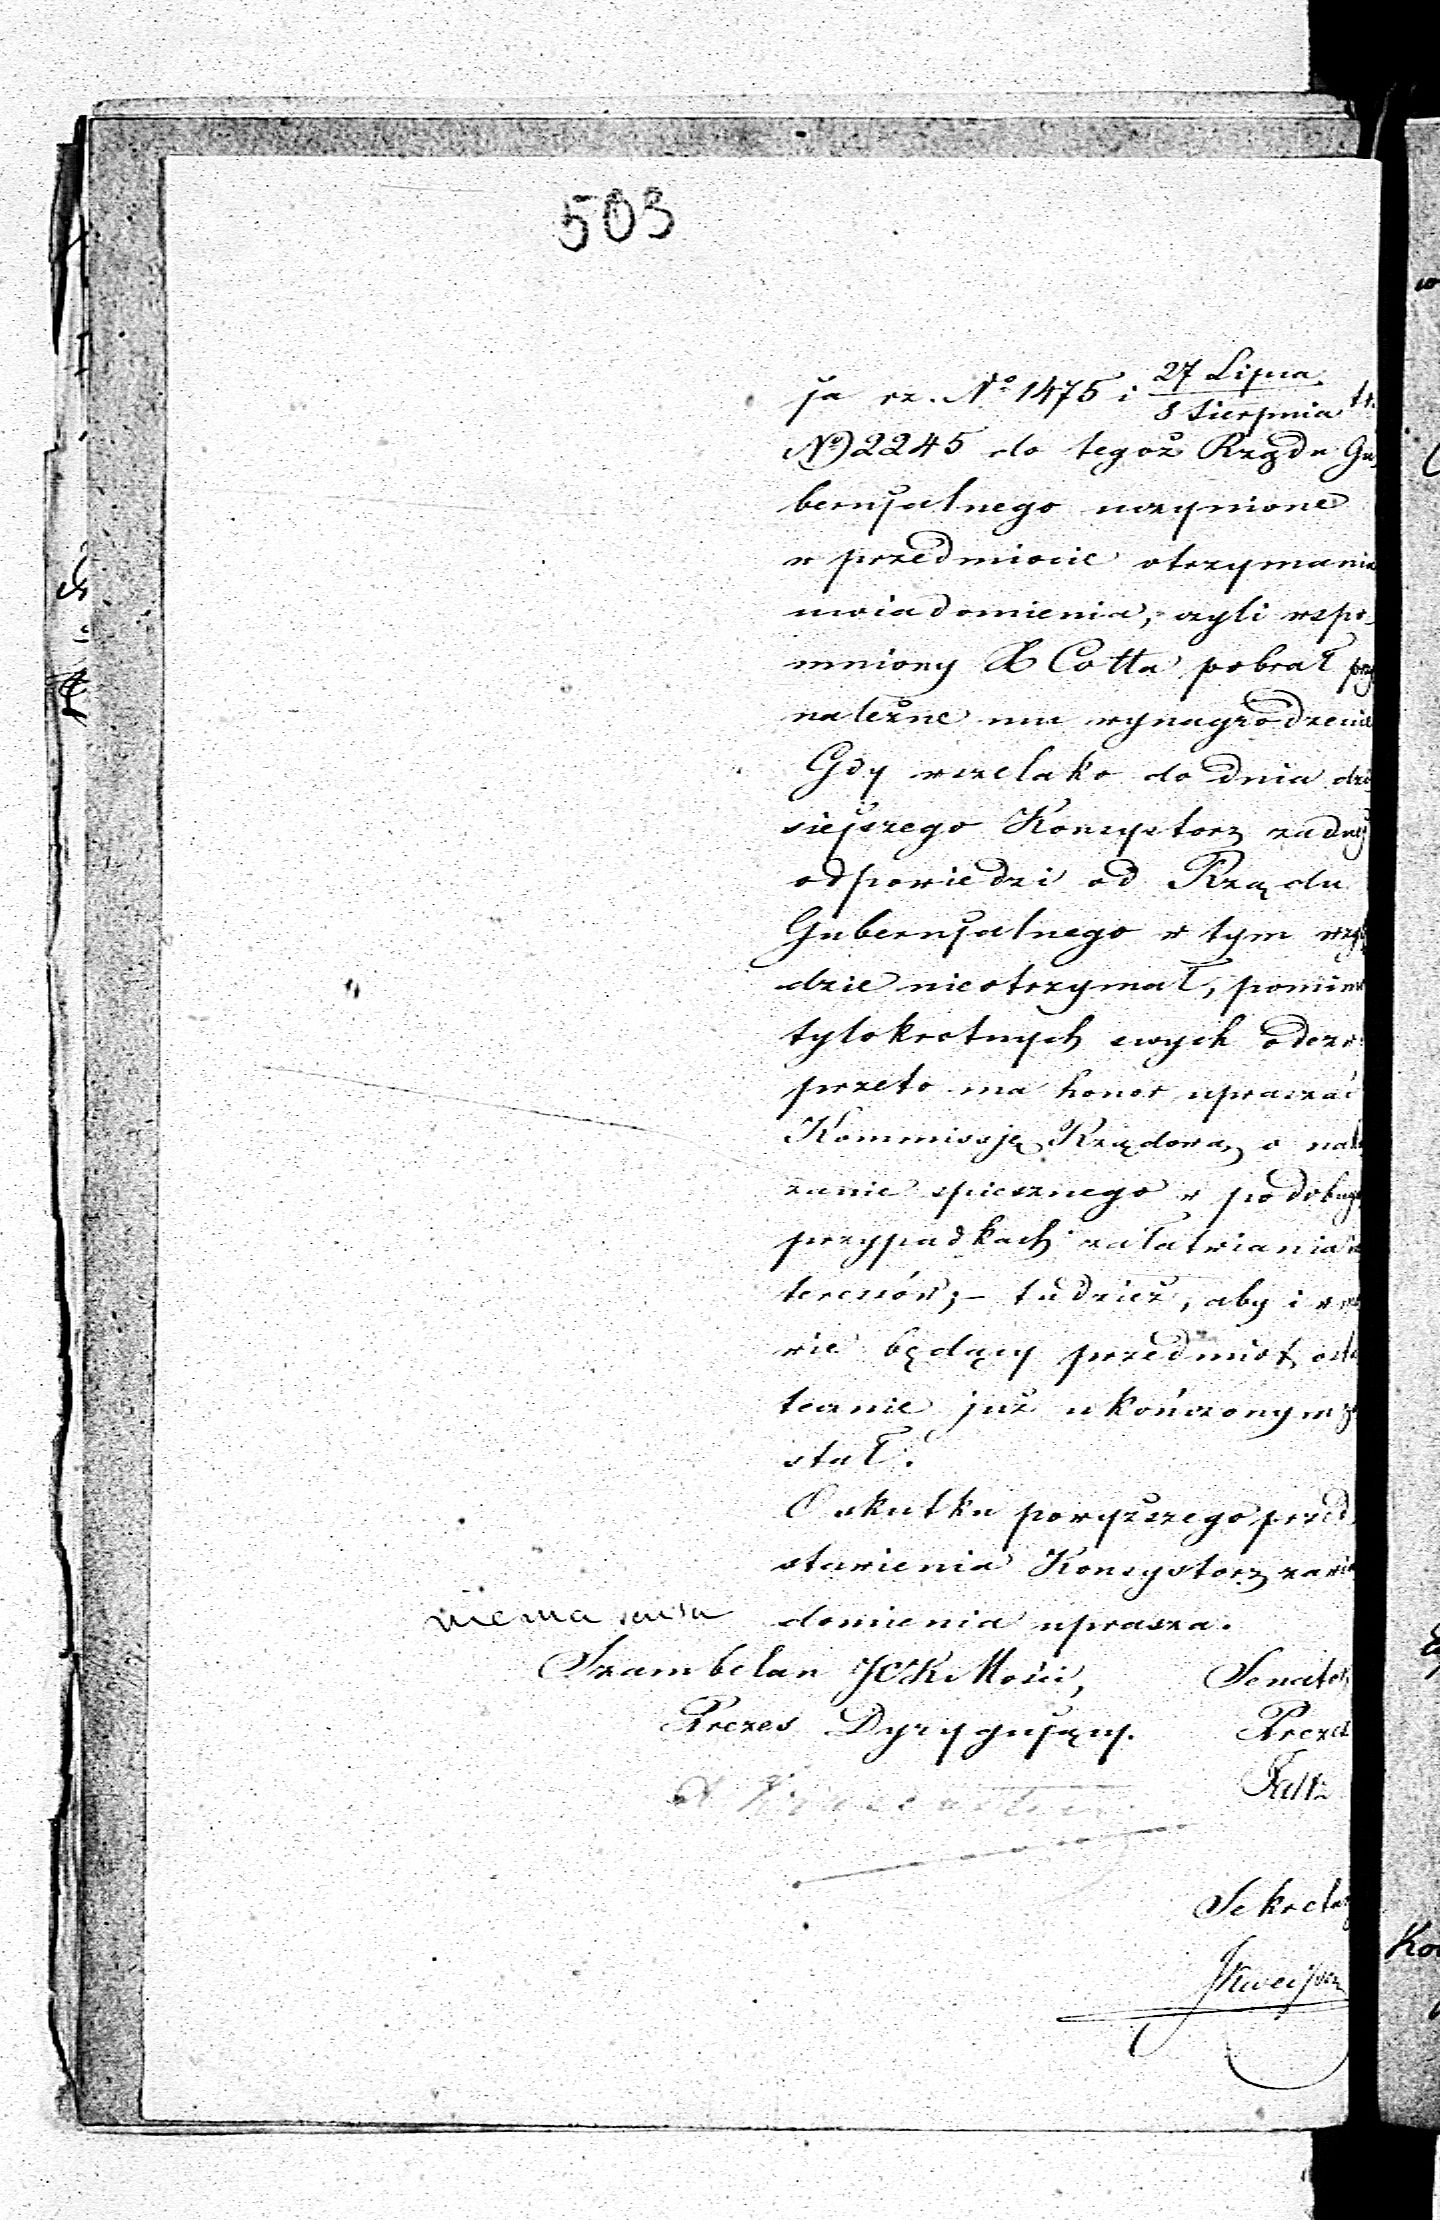 503
ja rz. Nº 1475 i 27 Lipca / 8 Sierpnia tr.
Nº 2245 do tegoż Rządu Gu
bernjalnego uczynione
w przedmiocie otrzymania
uwiadomienia, czyli wspo
mniony X Cotta pobrał przy
należne mu wynagrodzenie
Gdy wszelako do dnia dzi
siejszego Konsystorz żadnej
odpowiedzi od Rządu
Gubernjalnego w tym wzglę
dzie nieotrzymał, pomimo
tylokrotnych swych odezw
przeto ma honor upraszać
Kommissję Rządową o naka
zanie spiesznego w podobnych
przypadkach załatwiania in
teressów; – tudzież, aby i w mo
wie będący przedmiot osta
tecznie już ukończonym zo
stał.
O skutku powyższego przed
stawienia Konsystorz zawia
domienia uprasza.
niema
Szambelan JCK Mości, Senator
Prezes Dyrygujący. Prezes
Sekretarz